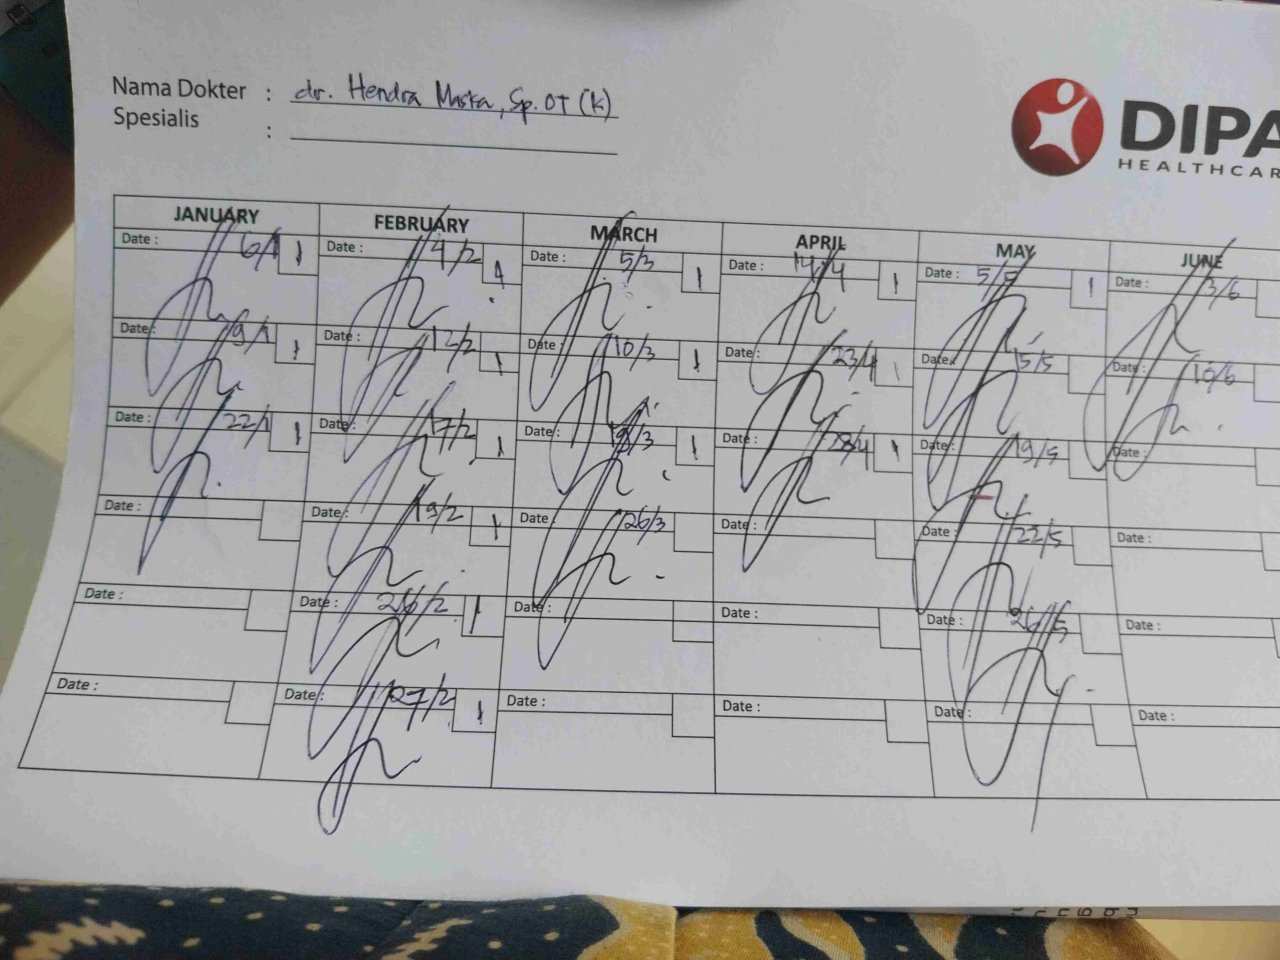 Nama Dokter : dr. Hendra Maska, Sp.OT (K)
Spesialis :
DIPA
HEALTHCAR
JANUARY FEBRUARY MARCH APRIL MAY JUNE
Date : 6/1 1 Date : 4/2 1 Date : 5/3 1 Date : 14/4 1 Date : 5/5 1 Date : 3/6
Date : 9/1 1 Date : 12/2 1 Date : 10/3 1 Date : 23/4 1 Date : 15/5 Date : 10/6
Date : 22/1 1 Date : 17/2 1 Date : 3 1 Date : 28/4 1 Date : 19/5 Date :
Date : Date : 19/2 1 Date : 26/3 Date : Date : 22/5 Date :
Date : Date : 26/2 1 Date : Date : Date : 26/5 Date :
Date : Date : 27/2 1 Date : Date : Date : Date :